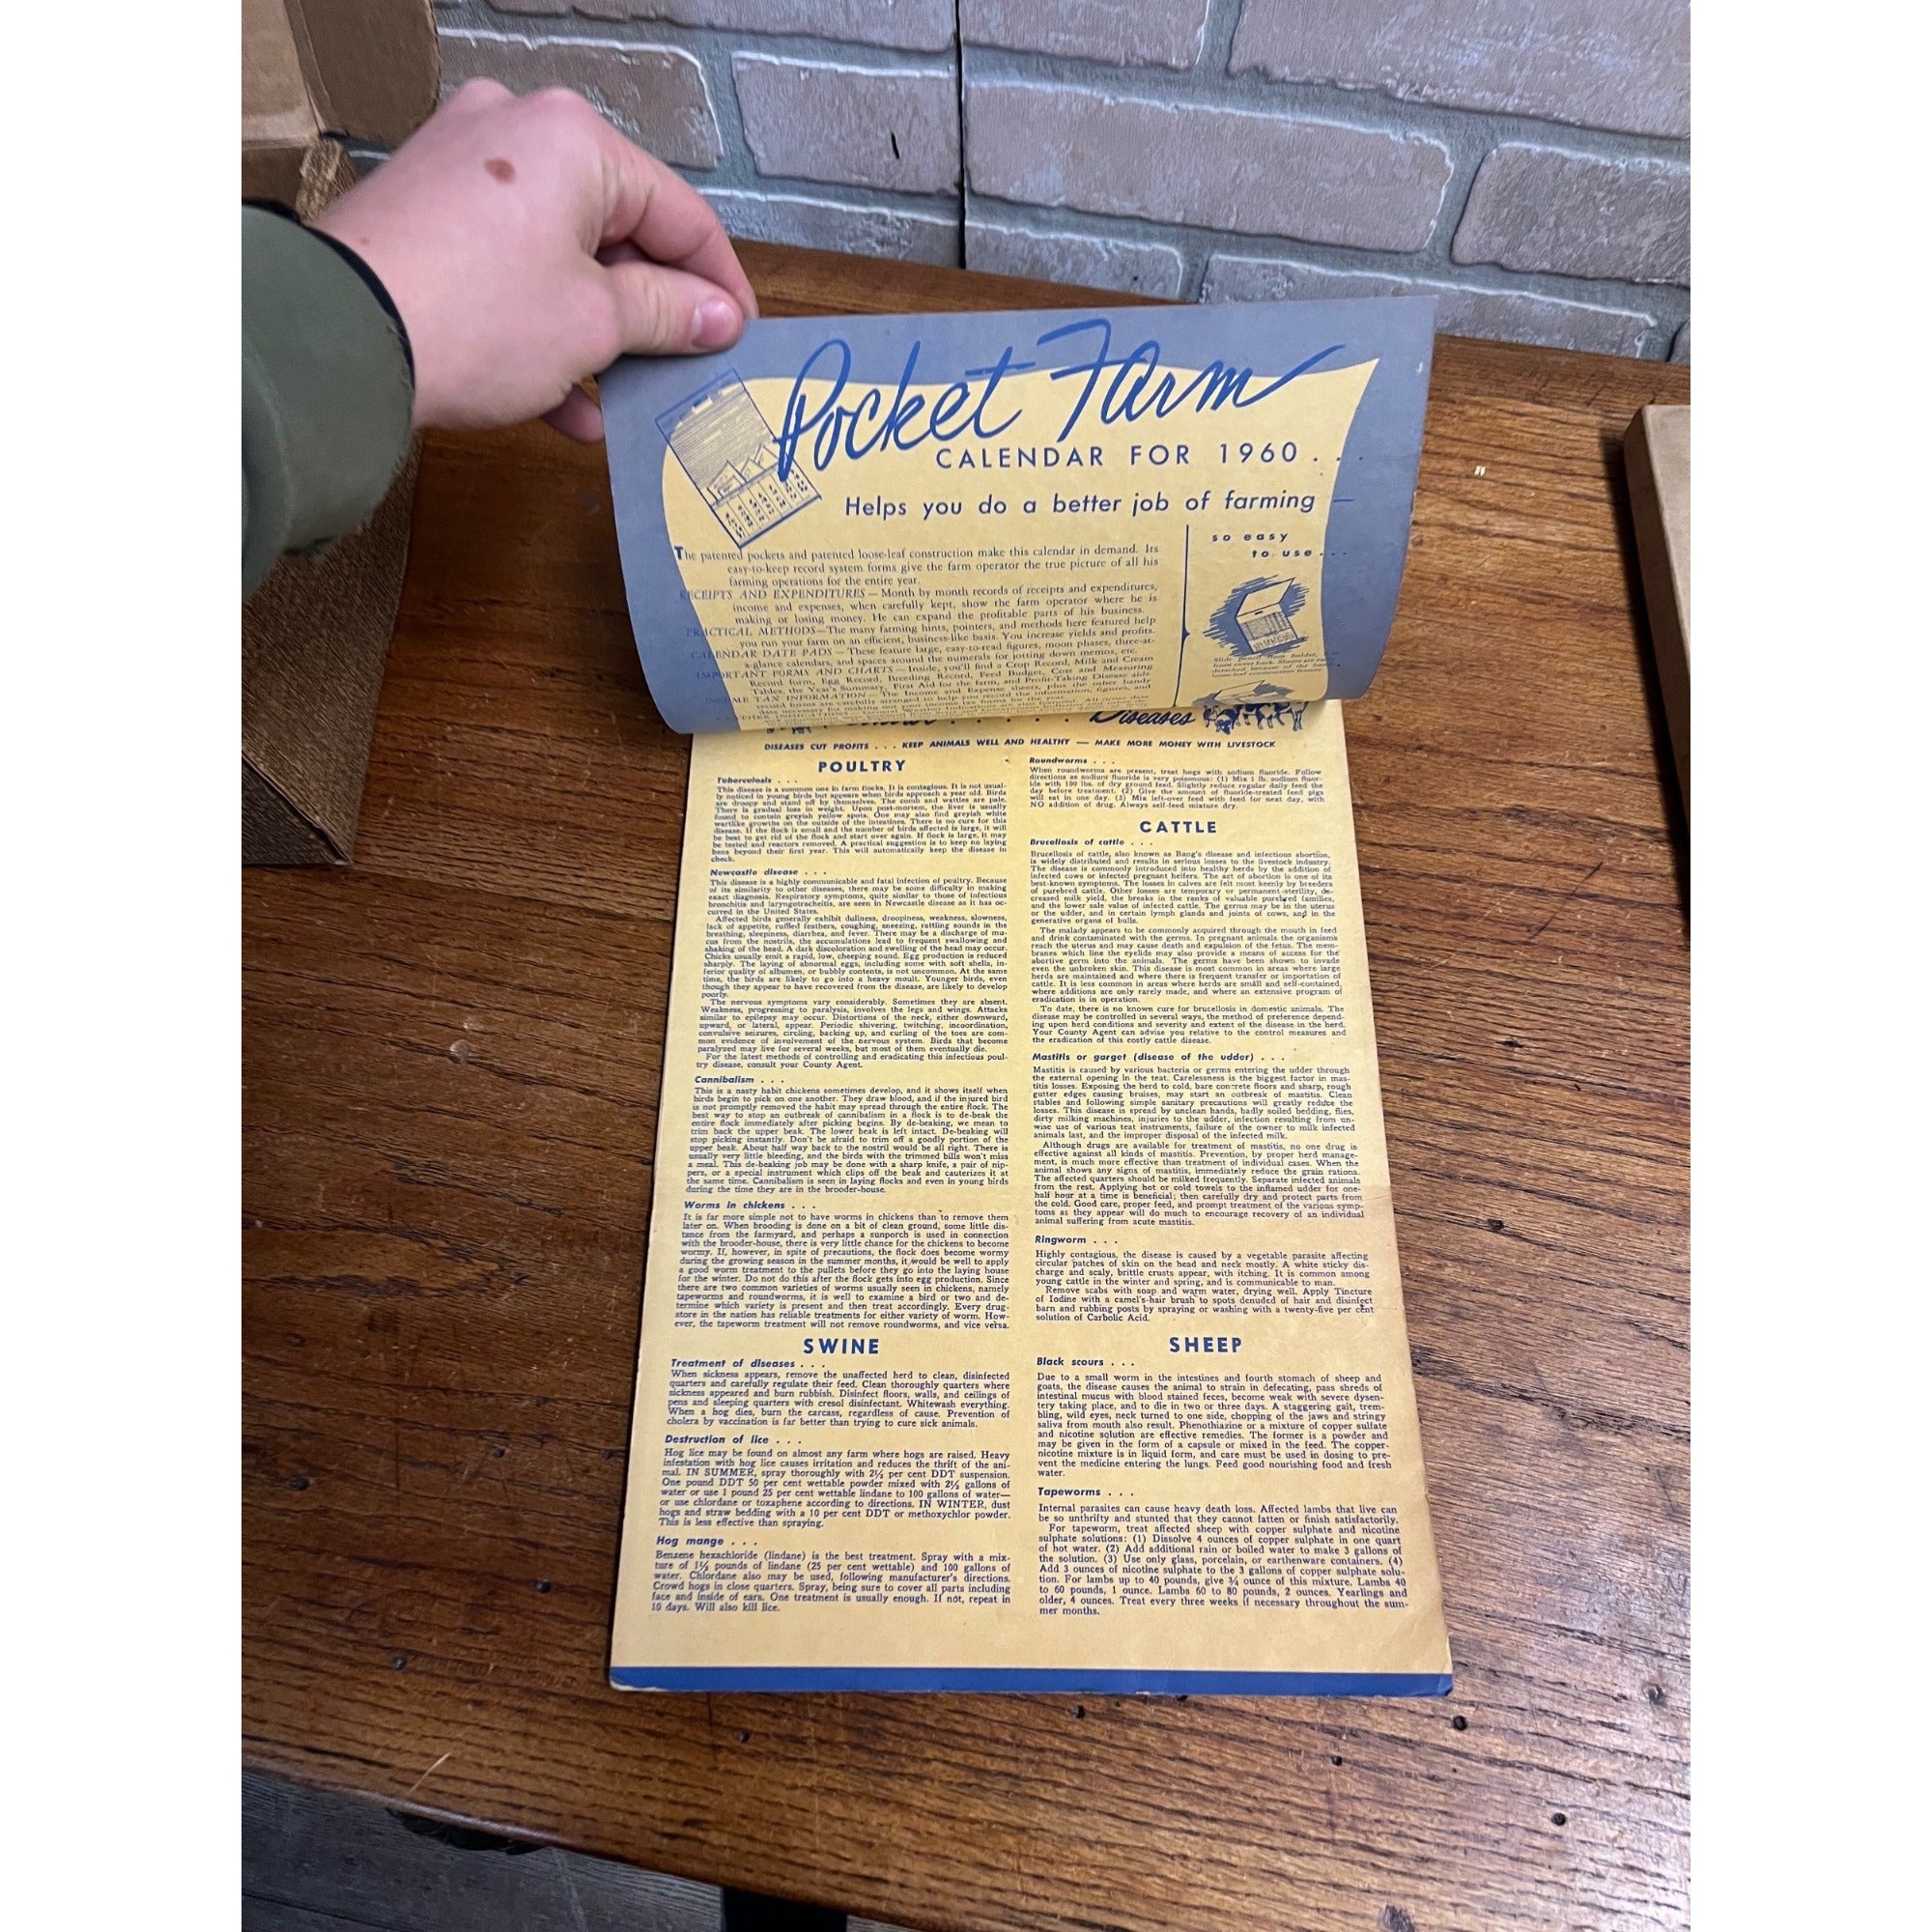 Pocket Farm
CALENDAR FOR 1960 . . .
Helps you do a better job of farming —
The patented pockets and patented loose-leaf construction make this calendar in demand. Its
easy-to-keep record system forms give the farm operator the true picture of all his
farming operations for the entire year.
RECEIPTS AND EXPENDITURES — Month by month records of receipts and expenditures,
income and expenses, when carefully kept, show the farm operator where he is
making or losing money. He can expand the profitable parts of his business.
PRACTICAL METHODS—The many farming hints, pointers, and methods here featured help
you run your farm on an efficient, business-like basis. You increase yields and profits.
CALENDAR DATE PADS — These feature large, easy-to-read figures, moon phases, three-at-
a-glance calendars, and spaces around the numerals for jotting down memos, etc.
IMPORTANT FORMS AND CHARTS — Inside, you'll find a Crop Record, Milk and Cream
Record form, Egg Record, Breeding Record, Feed Budget, Cost and Measuring
Tables, the Year's Summary, First Aid for the farm, and Profit-Taking Disease aids
INCOME TAX INFORMATION — The Income and Expense sheets, plus the other handy
record forms are carefully arranged to help you record the information, figures, and
so easy
to use . . .
Diseases
DISEASES CUT PROFITS . . . KEEP ANIMALS WELL AND HEALTHY — MAKE MORE MONEY WITH LIVESTOCK
POULTRY
Tuberculosis . . .
This disease is a common one in farm flocks. It is contagious. It is not usual-
ly noticed in young birds but appears when birds approach a year old. Birds
are droopy and stand off by themselves. The comb and wattles are pale.
There is gradual loss in weight. Upon post-mortem, the liver is usually
found to contain greyish yellow spots. One may also find greyish white
wartlike growths on the outside of the intestines. There is no cure for this
disease. If the flock is small and the number of birds affected is large, it will
be best to get rid of the flock and start over again. If flock is large, it may
be tested and reactors removed. A practical suggestion is to keep no laying
hens beyond their first year. This will automatically keep the disease in
check.
Newcastle disease . . .
This disease is a highly communicable and fatal infection of poultry. Because
of its similarity to other diseases, there may be some difficulty in making
exact diagnosis. Respiratory symptoms, quite similar to those of infectious
bronchitis and laryngotracheitis, are seen in Newcastle disease as it has oc-
curred in the United States.
Affected birds generally exhibit dullness, droopiness, weakness, slowness,
lack of appetite, ruffled feathers, coughing, sneezing, rattling sounds in the
breathing, sleepiness, diarrhea, and fever. There may be a discharge of mu-
cus from the nostrils, the accumulations lead to frequent swallowing and
shaking of the head. A dark discoloration and swelling of the head may occur.
Chicks usually emit a rapid, low, cheeping sound. Egg production is reduced
sharply. The laying of abnormal eggs, including some with soft shells, in-
ferior quality of albumen, or bubbly contents, is not uncommon. At the same
time, the birds are likely to go into a heavy moult. Younger birds, even
though they appear to have recovered from the disease, are likely to develop
poorly.
The nervous symptoms vary considerably. Sometimes they are absent.
Weakness, progressing to paralysis, involves the legs and wings. Attacks
similar to epilepsy may occur. Distortions of the neck, either downward,
upward, or lateral, appear. Periodic shivering, twitching, incoordination,
convulsive seizures, circling, backing up, and curling of the toes are com-
mon evidence of involvement of the nervous system. Birds that become
paralyzed may live for several weeks, but most of them eventually die.
For the latest methods of controlling and eradicating this infectious poul-
try disease, consult your County Agent.
Cannibalism . . .
This is a nasty habit chickens sometimes develop, and it shows itself when
birds begin to pick on one another. They draw blood, and if the injured bird
is not promptly removed the habit may spread through the entire flock. The
best way to stop an outbreak of cannibalism in a flock is to de-beak the
entire flock immediately after picking begins. By de-beaking, we mean to
trim back the upper beak. The lower beak is left intact. De-beaking will
stop picking instantly. Don't be afraid to trim off a goodly portion of the
upper beak. About half way back to the nostril would be all right. There is
usually very little bleeding, and the birds with the trimmed bills won't miss
a meal. This de-beaking job may be done with a sharp knife, a pair of nip-
pers, or a special instrument which clips off the beak and cauterizes it at
the same time. Cannibalism is seen in laying flocks and even in young birds
during the time they are in the brooder-house.
Worms in chickens . . .
It is far more simple not to have worms in chickens than to remove them
later on. When brooding is done on a bit of clean ground, some little dis-
tance from the farmyard, and perhaps a sunporch is used in connection
with the brooder-house, there is very little chance for the chickens to become
wormy. If, however, in spite of precautions, the flock does become wormy
during the growing season in the summer months, it would be well to apply
a good worm treatment to the pullets before they go into the laying house
for the winter. Do not do this after the flock gets into egg production. Since
there are two common varieties of worms usually seen in chickens, namely
tapeworms and roundworms, it is well to examine a bird or two and de-
termine which variety is present and then treat accordingly. Every drug-
store in the nation has reliable treatments for either variety of worm. How-
ever, the tapeworm treatment will not remove roundworms, and vice versa.
SWINE
Treatment of diseases . . .
When sickness appears, remove the unaffected herd to clean, disinfected
quarters and carefully regulate their feed. Clean thoroughly quarters where
sickness appeared and burn rubbish. Disinfect floors, walls, and ceilings of
pens and sleeping quarters with cresol disinfectant. Whitewash everything.
When a hog dies, burn the carcass, regardless of cause. Prevention of
cholera by vaccination is far better than trying to cure sick animals.
Destruction of lice . . .
Hog lice may be found on almost any farm where hogs are raised. Heavy
infestation with hog lice causes irritation and reduces the thrift of the ani-
mal. IN SUMMER, spray thoroughly with 2½ per cent DDT suspension.
One pound DDT 50 per cent wettable powder mixed with 2½ gallons of
water or use 1 pound 25 per cent wettable lindane to 100 gallons of water—
or use chlordane or toxaphene according to directions. IN WINTER, dust
hogs and straw bedding with a 10 per cent DDT or methoxychlor powder.
This is less effective than spraying.
Hog mange . . .
Benzene hexachloride (lindane) is the best treatment. Spray with a mix-
ture of 1½ pounds of lindane (25 per cent wettable) and 100 gallons of
water. Chlordane also may be used, following manufacturer's directions.
Crowd hogs in close quarters. Spray, being sure to cover all parts including
face and inside of ears. One treatment is usually enough. If not, repeat in
10 days. Will also kill lice.
Roundworms . . .
When roundworms are present, treat hogs with sodium fluoride. Follow
directions as sodium fluoride is very poisonous: (1) Mix 1 lb. sodium fluor-
ide with 100 lbs. of dry ground feed. Slightly reduce regular daily feed the
day before treatment. (2) Give the amount of fluoride-treated feed pigs
will eat in one day. (3) Mix left-over feed with feed for next day, with
NO addition of drug. Always self-feed mixture dry.
CATTLE
Brucellosis of cattle . . .
Brucellosis of cattle, also known as Bang's disease and infectious abortion,
is widely distributed and results in serious losses to the livestock industry.
The disease is commonly introduced into healthy herds by the addition of
infected cows or infected pregnant heifers. The act of abortion is one of its
best-known symptoms. The losses in calves are felt most keenly by breeders
of purebred cattle. Other losses are temporary or permanent sterility, de-
creased milk yield, the breaks in the ranks of valuable purebred families,
and the lower sale value of infected cattle. The germs may be in the uterus
or the udder, and in certain lymph glands and joints of cows, and in the
generative organs of bulls.
The malady appears to be commonly acquired through the mouth in feed
and drink contaminated with the germs. In pregnant animals the organisms
reach the uterus and may cause death and expulsion of the fetus. The mem-
branes which line the eyelids may also provide a means of access for the
abortive germ into the animals. The germs have been shown to invade
even the unbroken skin. This disease is most common in areas where large
herds are maintained and where there is frequent transfer or importation of
cattle. It is less common in areas where herds are small and self-contained,
where additions are only rarely made, and where an extensive program of
eradication is in operation.
To date, there is no known cure for brucellosis in domestic animals. The
disease may be controlled in several ways, the method of preference depend-
ing upon herd conditions and severity and extent of the disease in the herd.
Your County Agent can advise you relative to the control measures and
the eradication of this costly cattle disease.
Mastitis or garget (disease of the udder) . . .
Mastitis is caused by various bacteria or germs entering the udder through
the external opening in the teat. Carelessness is the biggest factor in mas-
titis losses. Exposing the herd to cold, bare concrete floors and sharp, rough
gutter edges causing bruises, may start an outbreak of mastitis. Clean
stables and following simple sanitary precautions will greatly reduce the
losses. This disease is spread by unclean hands, badly soiled bedding, flies,
dirty milking machines, injuries to the udder, infection resulting from un-
wise use of various teat instruments, failure of the owner to milk infected
animals last, and the improper disposal of the infected milk.
Although drugs are available for treatment of mastitis, no one drug is
effective against all kinds of mastitis. Prevention, by proper herd manage-
ment, is much more effective than treatment of individual cases. When the
animal shows any signs of mastitis, immediately reduce the grain rations.
The affected quarters should be milked frequently. Separate infected animals
from the rest. Applying hot or cold towels to the inflamed udder for one-
half hour at a time is beneficial; then carefully dry and protect parts from
the cold. Good care, proper feed, and prompt treatment of the various symp-
toms as they appear will do much to encourage recovery of an individual
animal suffering from acute mastitis.
Ringworm . . .
Highly contagious, the disease is caused by a vegetable parasite affecting
circular patches of skin on the head and neck mostly. A white sticky dis-
charge and scaly, brittle crusts appear, with itching. It is common among
young cattle in the winter and spring, and is communicable to man.
Remove scabs with soap and warm water, drying well. Apply Tincture
of Iodine with a camel's-hair brush to spots denuded of hair and disinfect
barn and rubbing posts by spraying or washing with a twenty-five per cent
solution of Carbolic Acid.
SHEEP
Black scours . . .
Due to a small worm in the intestines and fourth stomach of sheep and
goats, the disease causes the animal to strain in defecating, pass shreds of
intestinal mucus with blood stained feces, become weak with severe dysen-
tery taking place, and to die in two or three days. A staggering gait, trem-
bling, wild eyes, neck turned to one side, chopping of the jaws and stringy
saliva from mouth also result. Phenothiazine or a mixture of copper sulfate
and nicotine solution are effective remedies. The former is a powder and
may be given in the form of a capsule or mixed in the feed. The copper-
nicotine mixture is in liquid form, and care must be used in dosing to pre-
vent the medicine entering the lungs. Feed good nourishing food and fresh
water.
Tapeworms . . .
Internal parasites can cause heavy death loss. Affected lambs that live can
be so unthrifty and stunted that they cannot fatten or finish satisfactorily.
For tapeworm, treat affected sheep with copper sulphate and nicotine
sulphate solutions: (1) Dissolve 4 ounces of copper sulphate in one quart
of hot water. (2) Add additional rain or boiled water to make 3 gallons of
the solution. (3) Use only glass, porcelain, or earthenware containers. (4)
Add 3 ounces of nicotine sulphate to the 3 gallons of copper sulphate solu-
tion. For lambs up to 40 pounds, give ¾ ounce of this mixture. Lambs 40
to 60 pounds, 1 ounce. Lambs 60 to 80 pounds, 2 ounces. Yearlings and
older, 4 ounces. Treat every three weeks if necessary throughout the sum-
mer months.